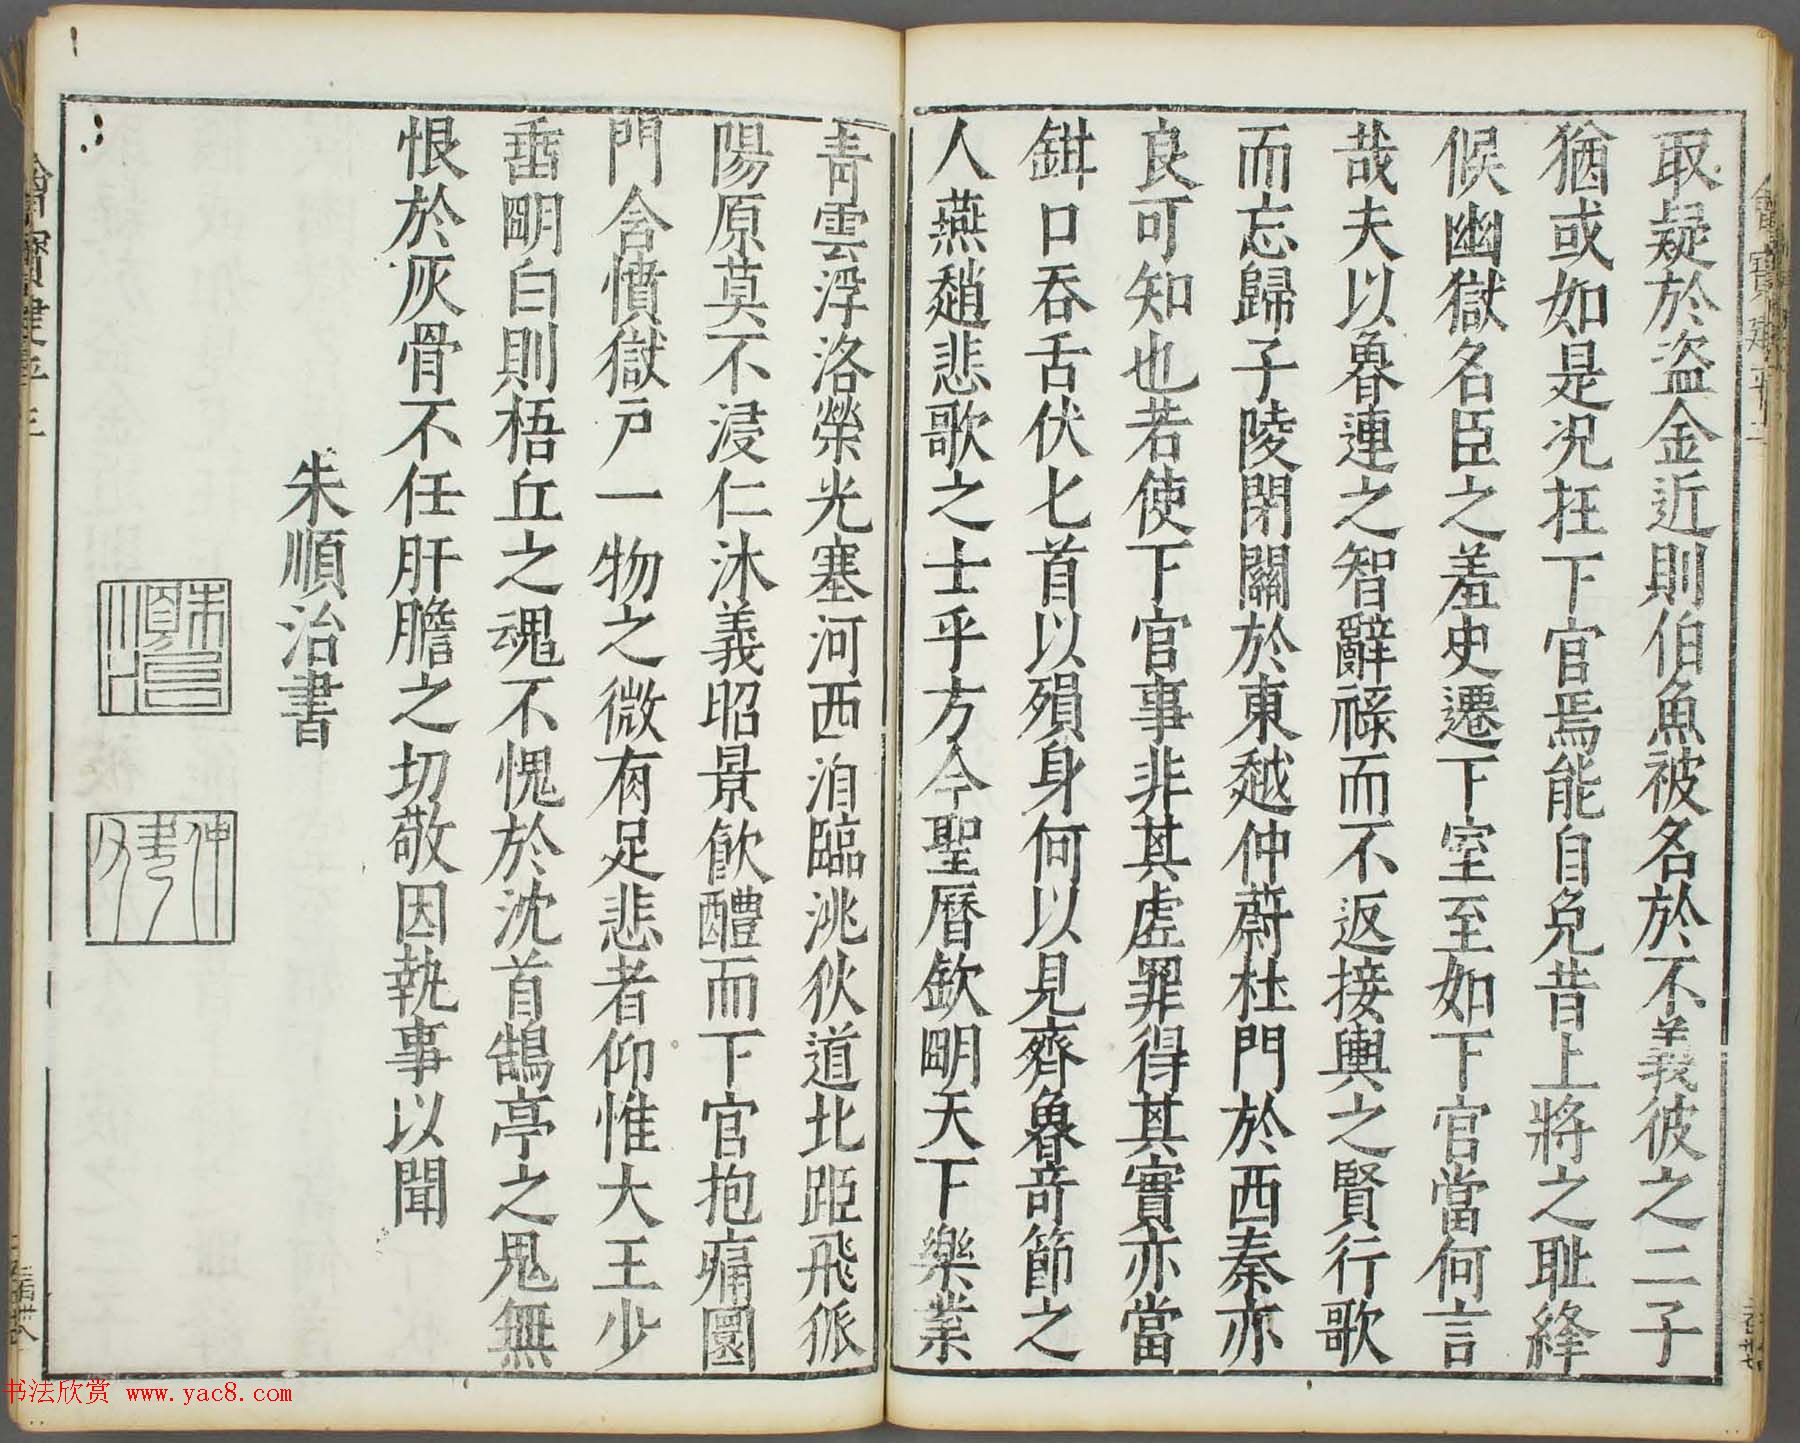 取疑於盗金近則伯魚被名於不義彼之二子
猶或如是况在下官焉能自免昔上將之耻絳
候幽獄名臣之羞史遷下室至如下官當何言
哉夫以魯連之智辭祿而不返接輿之賢行歌
而忘歸子陵閉關於東越仲蔚杜門於西秦亦
良可知也若使下官事非其虛罪得其實亦當
鉗口吞舌伏匕首以殞身何以見齊魯奇節之
人燕趙悲歌之士乎方今聖曆欽明天下樂業
青雲浮洛榮光塞河西洎臨洮狄道北距飛狐
陽原莫不浸仁沐義昭景飲醴而下官抱痛圜
門含憤獄户一物之微有足悲者仰惟大王少
垂明白則梧丘之魂不愧於沈首鵠亭之鬼無
恨於灰骨不任肝膽之切敬因執事以聞
朱順治書
书法欣赏 www.yac8.com